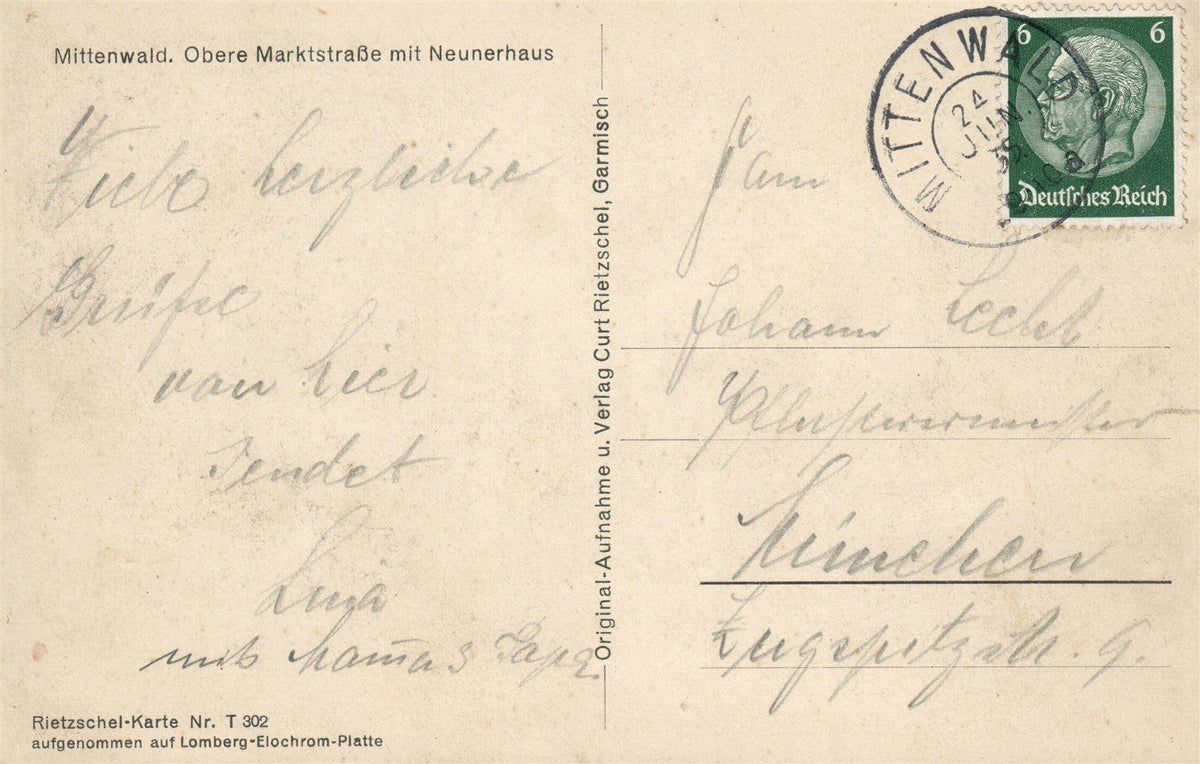 Mittenwald. Obere Marktstraße mit Neunerhaus
Viele herzliche
Grüße
von hier
sendet
mit Mama & Papa.
Rietzschel-Karte Nr. T 302
aufgenommen auf Lomberg-Elochrom-Platte
Original-Aufnahme u. Verlag Curt Rietzschel, Garmisch
MITTENWALD
24
JUN.
6 6
Deutsches Reich
Fam
Johann
Pflastermeister
München
Zugspitzstr. 9.